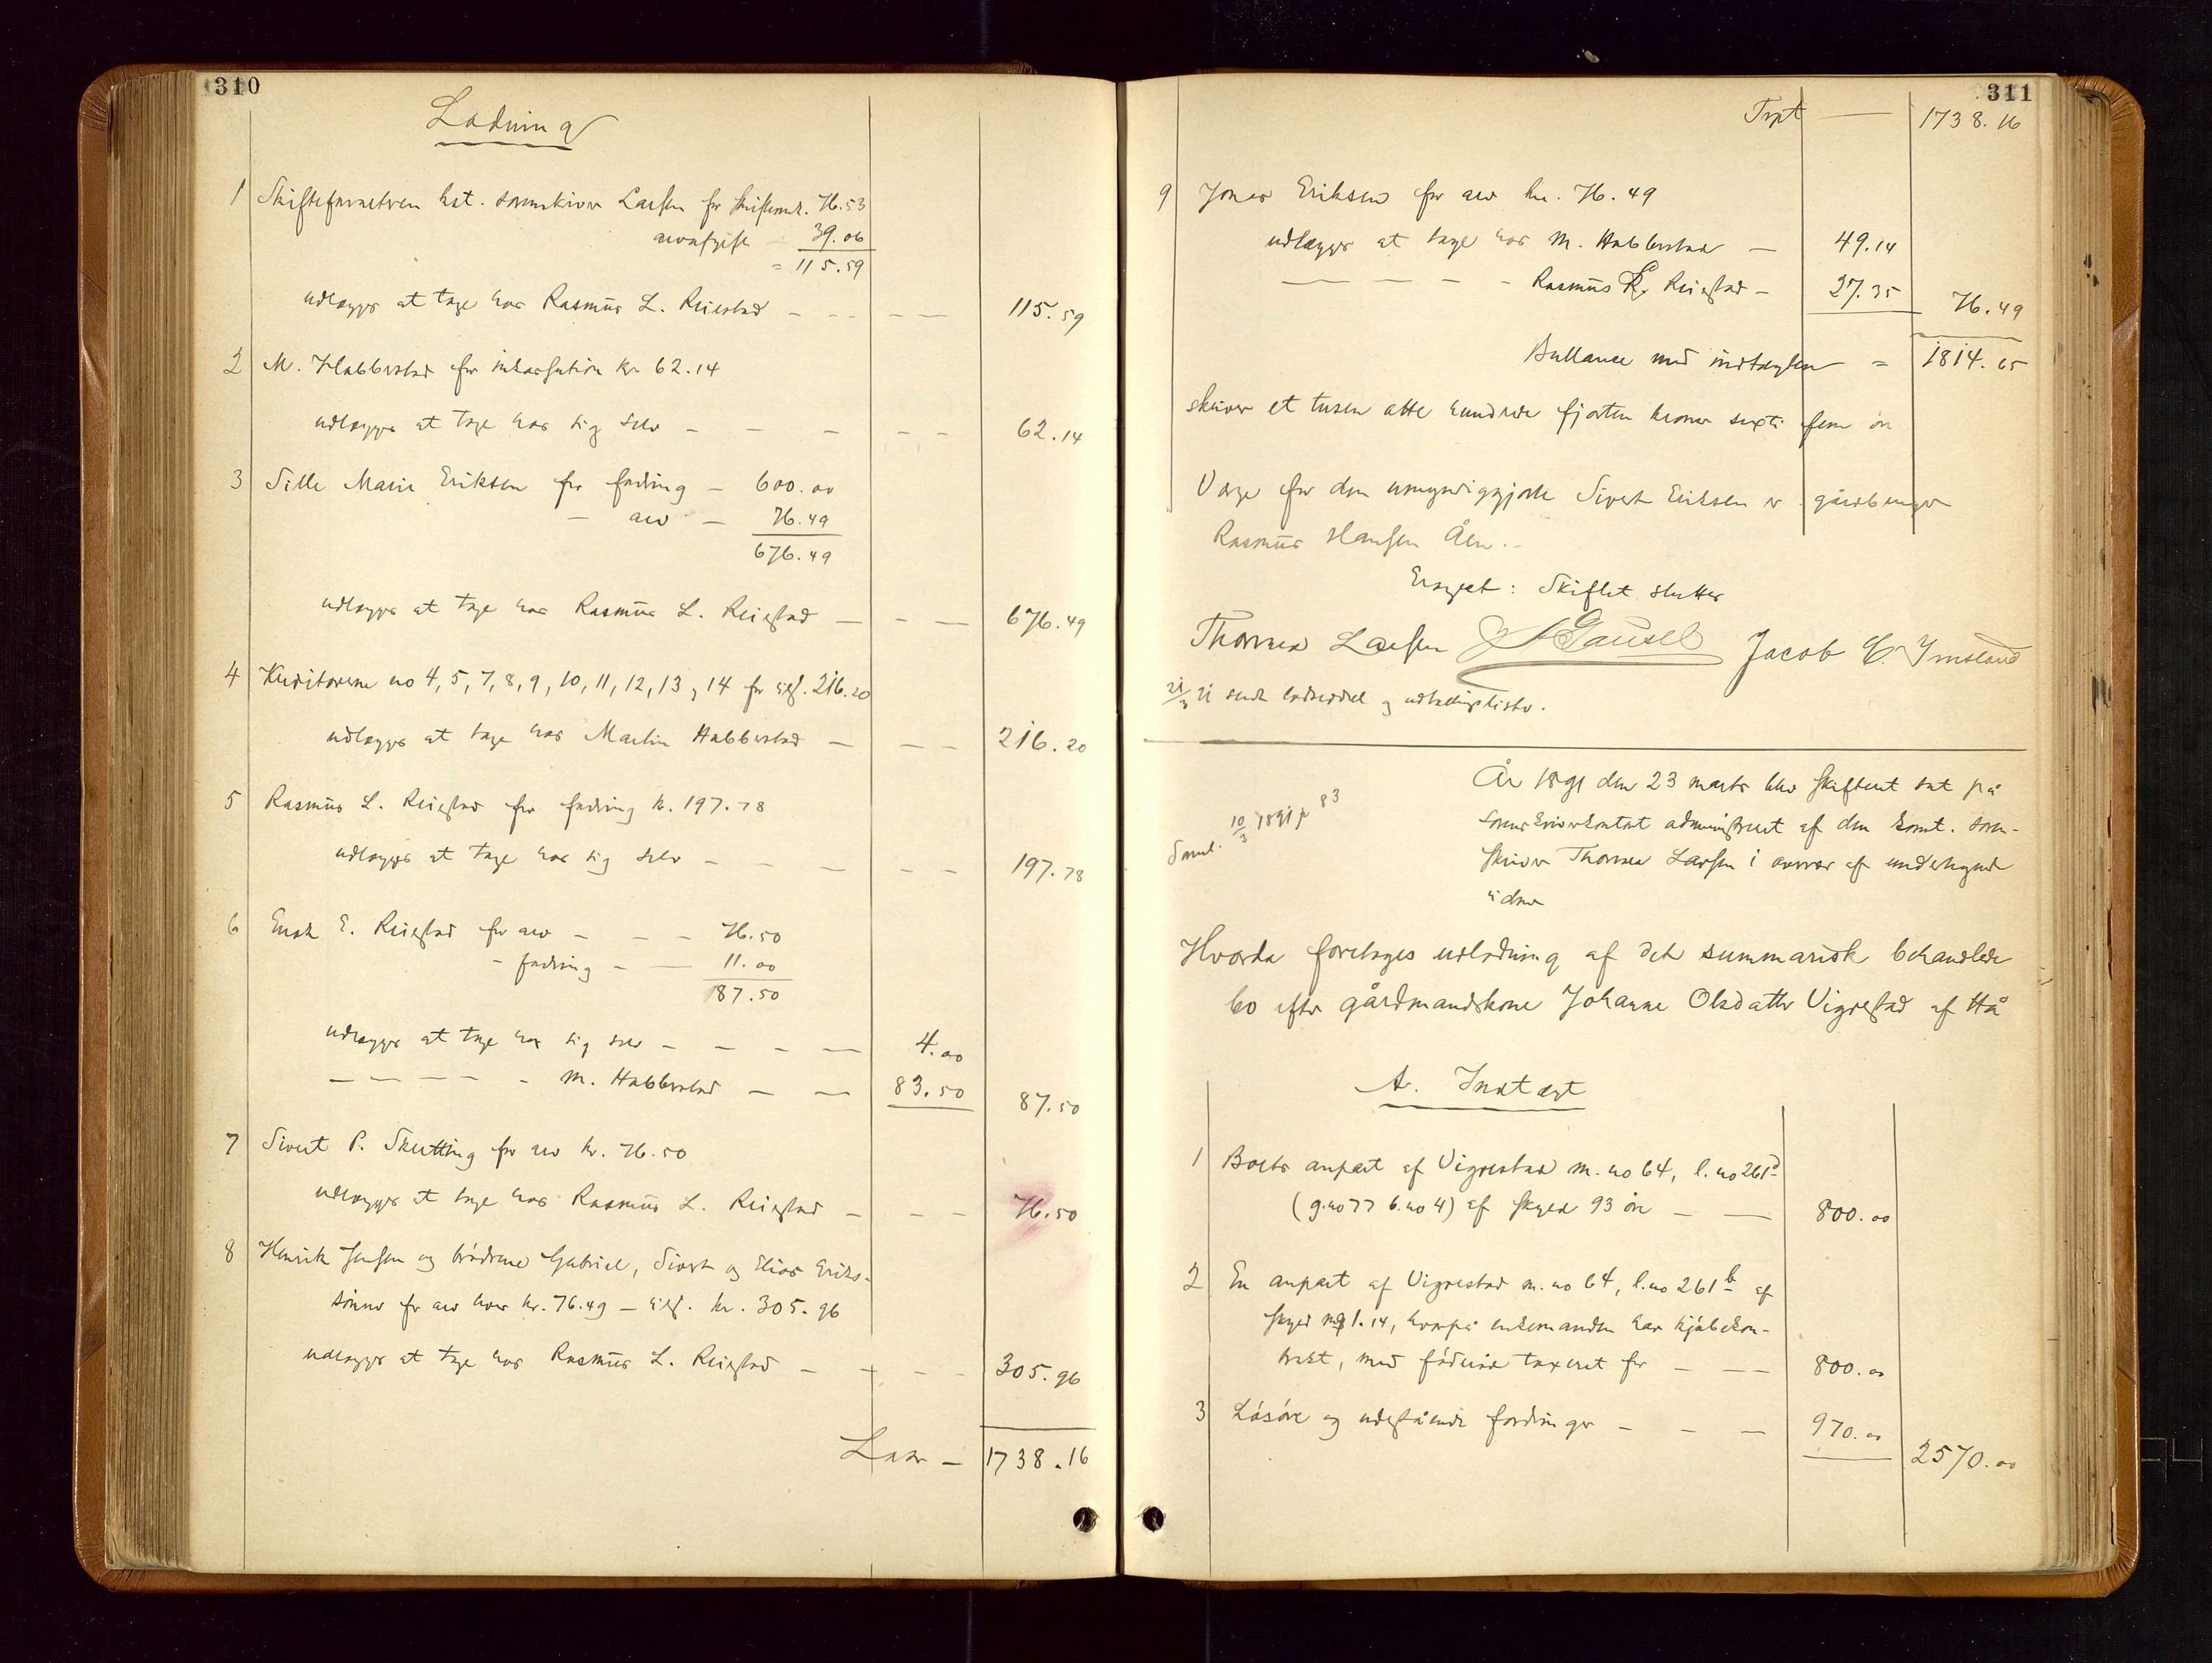 310
Lodning
1 Skifteforvalteren kst. sorenskriver Larsen for skifteomk. 76.53
arvafgift — 39.06
= 115.59
udlægges at tage hos Rasmus L. Reiestad — — — — 115.59
2 M. Habberstad for inkassation kr. 62.14
udlægges at tage hos sig selv — — — — — 62.14
3 Sille Marie Eriksen for fordring — 600.00
— arv — 76.49
676.49
udlægges at tage hos Rasmus L. Reiestad — — — 676.49
4 Kreditorerne no 4, 5, 7, 8, 9, 10, 11, 12, 13 og 14 for tils. 216.20
udlægges at tage hos Martin Habberstad — — — 216.20
5 Rasmus L. Reiestad for fordring kr. 197.78
udlægges at tage hos sig selv — — — — — 197.78
6 Enok E. Reiestad for arv — — — 76.50
- fordring — — 11.00
87.50
udlægges at tage hos sig selv — — — — 4.00
— — — — - M. Habberstad — — 83.50 87.50
7 Sivert P. Skretting for arv kr. 76.50
udlægges at tage hos Rasmus L. Reiestad — — — 76.50
8 Henrik Jensen og brödrene Gabriel, Sivert og Elias Eriks-
sönner for arv hver kr. 76.49 — tils. kr. 305.96
udlægges at tage hos Rasmus L. Reiestad — — — 305.96
Later — 1738.16
311
Trpt — 1738.16
9 Jonas Eriksen for arv kr. 76.49
udlægges at tage hos M. Habberstad — 49.14
— — — - Rasmus L. Reiestad — 27.35 76.49
Ballance med indtægten = 1814.65
skriver et tusen otte hundrede fjorten kroner sexti fem öre
Værge for den umyndiggjorte Sivert Eriksen er gårdbruger
Rasmus Hansen Åen.
Eragtet: Skiftet sluttes
Thomas Larsen Gausel Jacob E. Ymsland
21/3 91 sendt lodseddel og udtællingslister.
År 1891 den 23 marts blev skifteret sat på
Saml. 10/3 1891 p 83
sorenskriverkontoret administreret af den konst. soren-
skriver Thomas Larsen i overvær af undertegnede
vidner
Hvorda foretoges udlodning af det summarisk behandlede
bo efter gårdmandskone Johanne Olsdatter Vigrestad af Hå
A. Indtægt
1 Boets anpart af Vigrestad m. no 64, l. no 261d
(g. no 77 b. no 4) af skyld 93 öre — — 800.00
2 En anpart af Vigrestad m. no 64, l. no 261b af
skyld mk 1.14, hvorpå enkemanden har kjöbekon-
trakt, med föderåd taxeret for — — 800.00
3 Lösöre og udestående fordringer — — — 970.00 2570.00